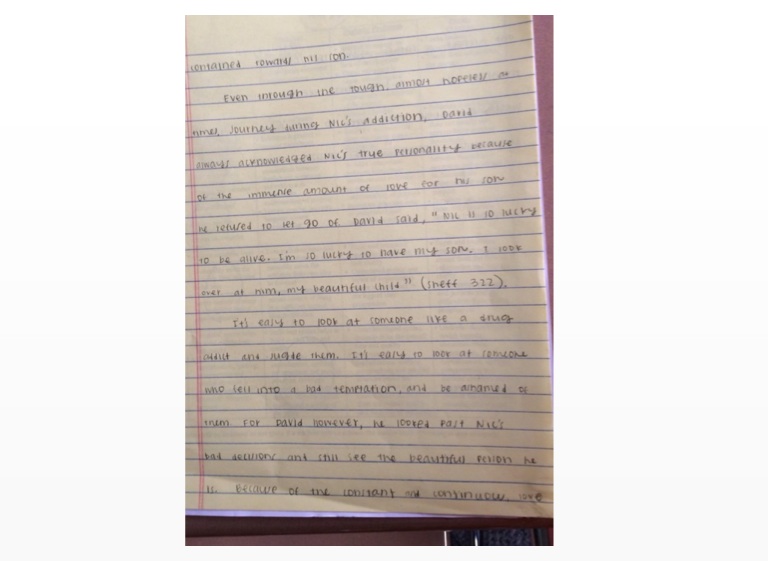 contained towards his son.
Even through the rough, almost hopeless at
times, journey during Nic's addiction, David
always acknowledged Nic's true personality because
of the immense amount of love for his son
he refused to let go of. David said, "Nic is so lucky
to be alive. I'm so lucky to have my son. I look
over at him, my beautiful child" (Sheff 322).
It's easy to look at someone like a drug
addict and judge them. It's easy to look at someone
who fell into a bad temptation, and be ashamed of
them. For David however, he looked past Nic's
bad decisions and still see the beautiful person he
is. Because of the constant and continuous, love